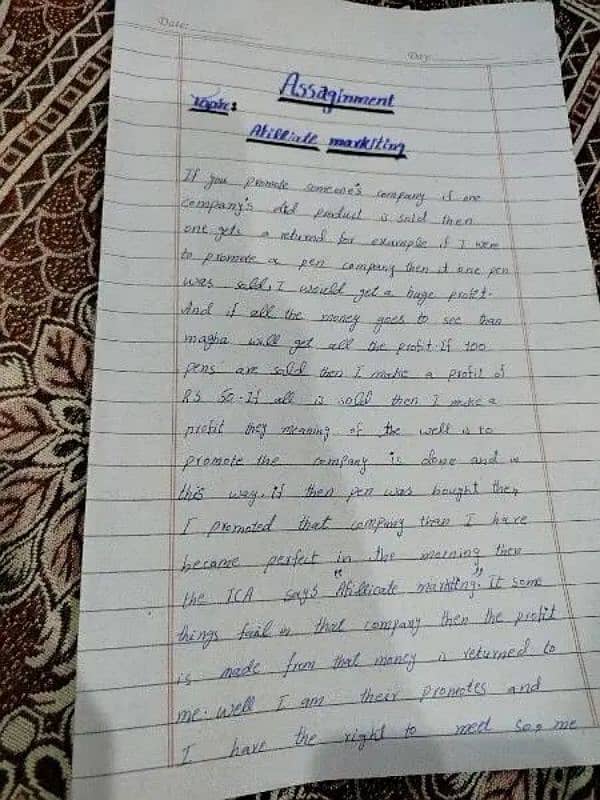 Date:
Day:
Assaginment
Topic:
Afilliate markiting
If you promote someone's company if one
company's did product is sold then
one gets a returnd for example if I were
to promote a pen company then it one pen
was sold, I would get a huge profit.
And if all the money goes to see than
magha will get all the profit. If 100
pens are sold then I make a profit of
RS 50. If all is sold then I make a
profit they meaning of the well is to
promote the company is done and in
this way. if then pen was bought then
I promoted that company than I have
became perfect in the morning then
the ICA says "Afillicate markiting". It some
things fail in that company then the profit
is made from that money is returned to
me. well I am their promotes and
I have the right to meet so, me